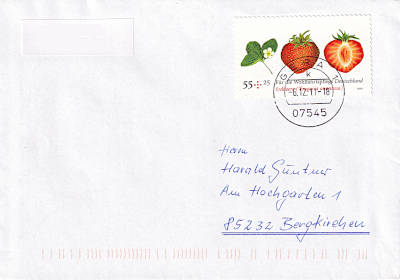 55+25
Für die Wohlfahrtspflege Deutschland
GERA 1
k
-6.12.11-18
07545
Herrn
Harald Güntner
Am Hochgarten 1
85232 Bergkirchen